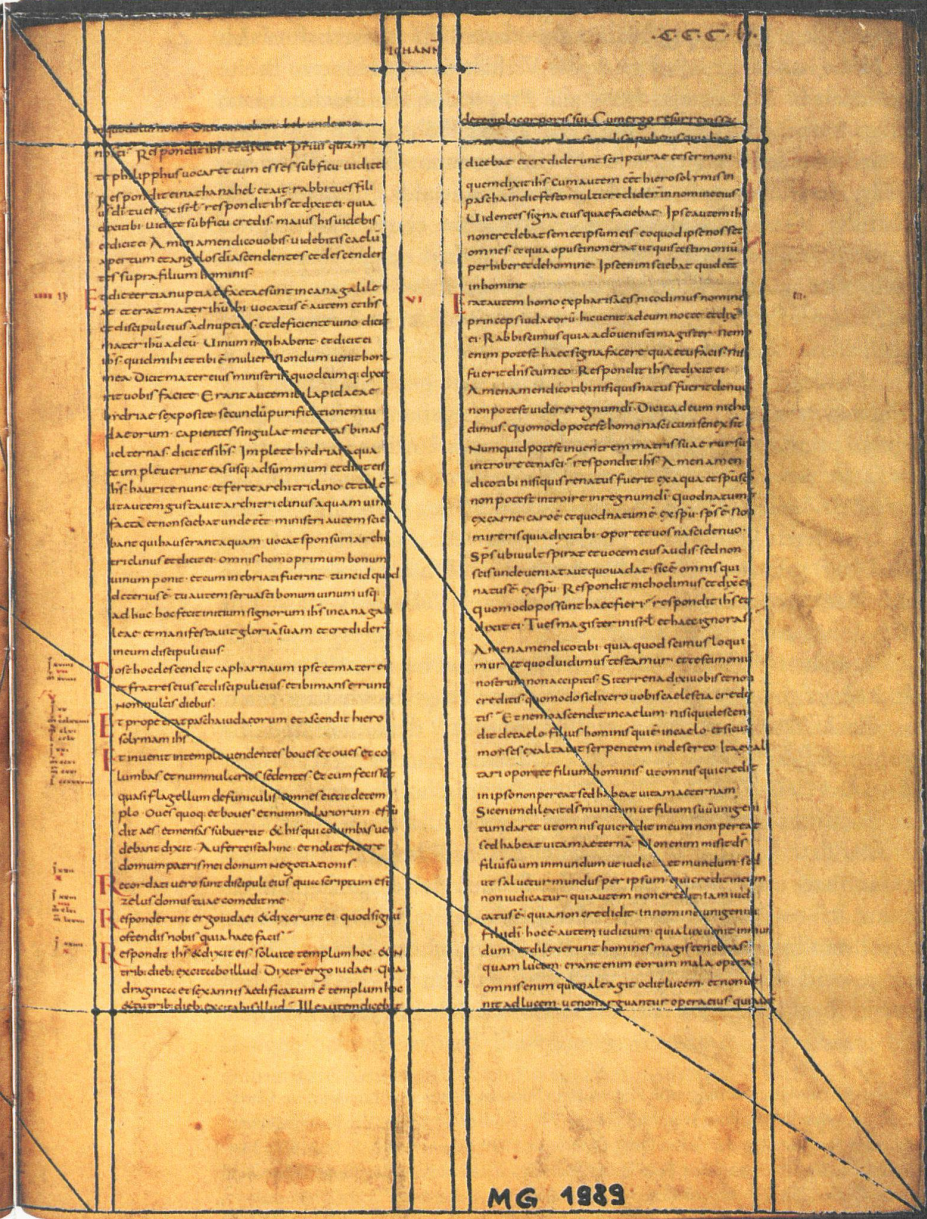 IOHANN
.C.C.C.
nosti Respondit ihs et dixit ei Prius quam
te philippus vocaret cum esses sub ficu vidi te
Respondit ei nathanahel et ait rabbi tu es fili
respondit ihs et dixit ei quia
dixi tibi vidi te sub ficu credis maius his videbis
et dicit ei Amen amen dico vobis videbitis caelu
apertum et angelos di ascendentes et descenden
tes supra filium hominis
Et die tertia nuptiae factae sunt in cana galile
et erat mater ihu ibi vocatus e autem et ihs
et discipuli eius ad nuptias et deficiente vino dicit
mater ihu ad eu Vinum non habent et dicit ei
ihs quid mihi et tibi e mulier Nondum venit hor
mea Dicit mater eius ministris quodcumq dixe
rit vobis facite Erant autem ibi lapideae
hydriae sex posite secundu purificationem iu
daeorum capientes singulae metretas binas
vel ternas dicit eis ihs Implete hydrias aqua
et impleverunt eas usq ad summum et dicit eis
ihs haurite nunc et ferte architriclino et tuler
ut autem gustavit architriclinus aquam vinu
facta et non sciebat unde eet ministri autem scie
bant qui hauserant aquam vocat sponsum archi
triclinus et dicit ei omnis homo primum bonum
vinum ponit et cum inebriati fuerint tunc id quod
deterius e tu autem servasti bonum vinum usq
ad huc hoc fecit initium signorum ihs in cana gali
leae et manifestavit gloria suam et credider
in eum discipuli eius
Post hoc descendit capharnaum ipse et mater ei
et fratres eius et discipuli eius et ibi manserunt
non multis diebus
Et prope erat pascha iudaeorum et ascendit hiero
solymam ihs
Et invenit in templo vendentes boves et oves et co
lumbas et nummularios sedentes Et cum fecisset
quasi flagellum de funiculis omnes eiecit de tem
plo Oves quoq et boves et nummulariorum effu
dit aes et mensas subvertit & his qui columbas ven
debant dixit Auferte ista hinc et nolite facere
domum patris mei domum negotiationis
Recordati vero sunt discipuli eius quia scriptum est
zelus domus tuae comedit me
Responderunt ergo iudaei & dixerunt ei quod signu
ostendis nobis quia haec facis
Respondit ihs & dixit eis solvite templum hoc & in
trib dieb excitabo illud Dixer ergo iudaei Qua
draginta et sex annis aedificatum e templum hoc
& tu trib dieb excitabis illud Ille autem dicebat
VI
de templo corporis sui Cum ergo resurrexisse
dicebat et crediderunt scripturae et sermoni
quem dixit ihs Cum autem eet hierosolymis in
pascha in die festo multi credider in nomine eius
Videntes signa eius quae faciebat Ipse autem ih
non credebat semetipsum eis eo quod ipse nosset
omnes et quia opus ei non erat ut quis testimoniu
perhiberet de homine Ipse enim sciebat quid eet
in homine
Erat autem homo ex pharisaeis nicodimus nomine
princeps iudaeoru hic venit ad eum nocte et dix
ei Rabbi scimus quia a do venisti magister Nemo
enim potest haec signa facere quae tu facis nisi
fuerit ds cum eo Respondit ihs et dixit ei
Amen amen dico tibi nisi quis natus fuerit denuo
non potest videre regnum di Dicit ad eum nicho
dimus quomodo potest homo nasci cum senex sit
Numquid potest in ventrem matris suae rursus
introire et nasci respondit ihs Amen amen
dico tibi nisi quis renatus fuerit ex aqua et spu sco
non potest introire in regnum di quod natum e
ex carne caro e et quod natum e ex spu sps e Non
mireris quia dixi tibi oportet vos nasci denuo
Sps ubi vult spirat et vocem eius audis sed non
scis unde veniat aut quo vadat sic e omnis qui
natus e ex spu Respondit nichodimus et dixit ei
quomodo possunt haec fieri respondit ihs et
dixit ei Tu es magister in isrl et haec ignoras
Amen amen dico tibi quia quod scimus loqui
mur et quod vidimus testamur et testimoniu
nostrum non accipitis Si terrena dixi vobis et non
creditis quomodo si dixero vobis caelestia credi
tis Et nemo ascendit in caelum nisi qui descen
dit de caelo filius hominis qui e in caelo et sicut
moyses exaltavit serpentem in deserto Ita exal
tari oportet filium hominis ut omnis qui credit
in ipso non pereat sed habeat vitam aeternam
Sic enim dilexit ds mundum ut filium suu unigeni
tum daret ut omnis qui credit in eum non pereat
sed habeat vitam aeterna Non enim misit ds
filiu suum in mundum ut iudicet mundum sed
ut salvetur mundus per ipsum qui credit in eum
non iudicatur qui autem non credit iam iudi
catus e quia non credidit in nomine unigeniti
filii di hoc e autem iudicium quia lux venit in mun
dum et dilexerunt homines magis tenebras
quam lucem erant enim eorum mala opera
omnis enim qui male agit odit lucem et non ve
nit ad lucem ut non arguantur opera eius qui aut
MG 1989